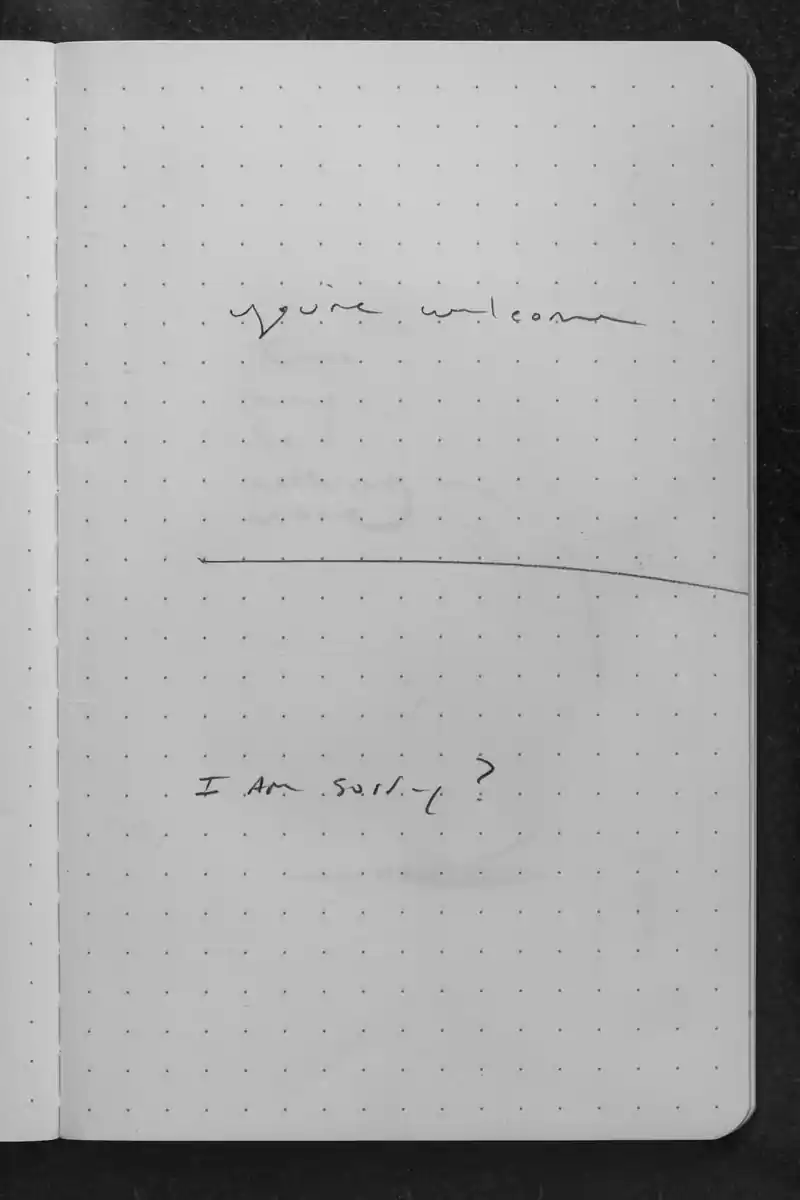 you're welcome
I Am sorry?